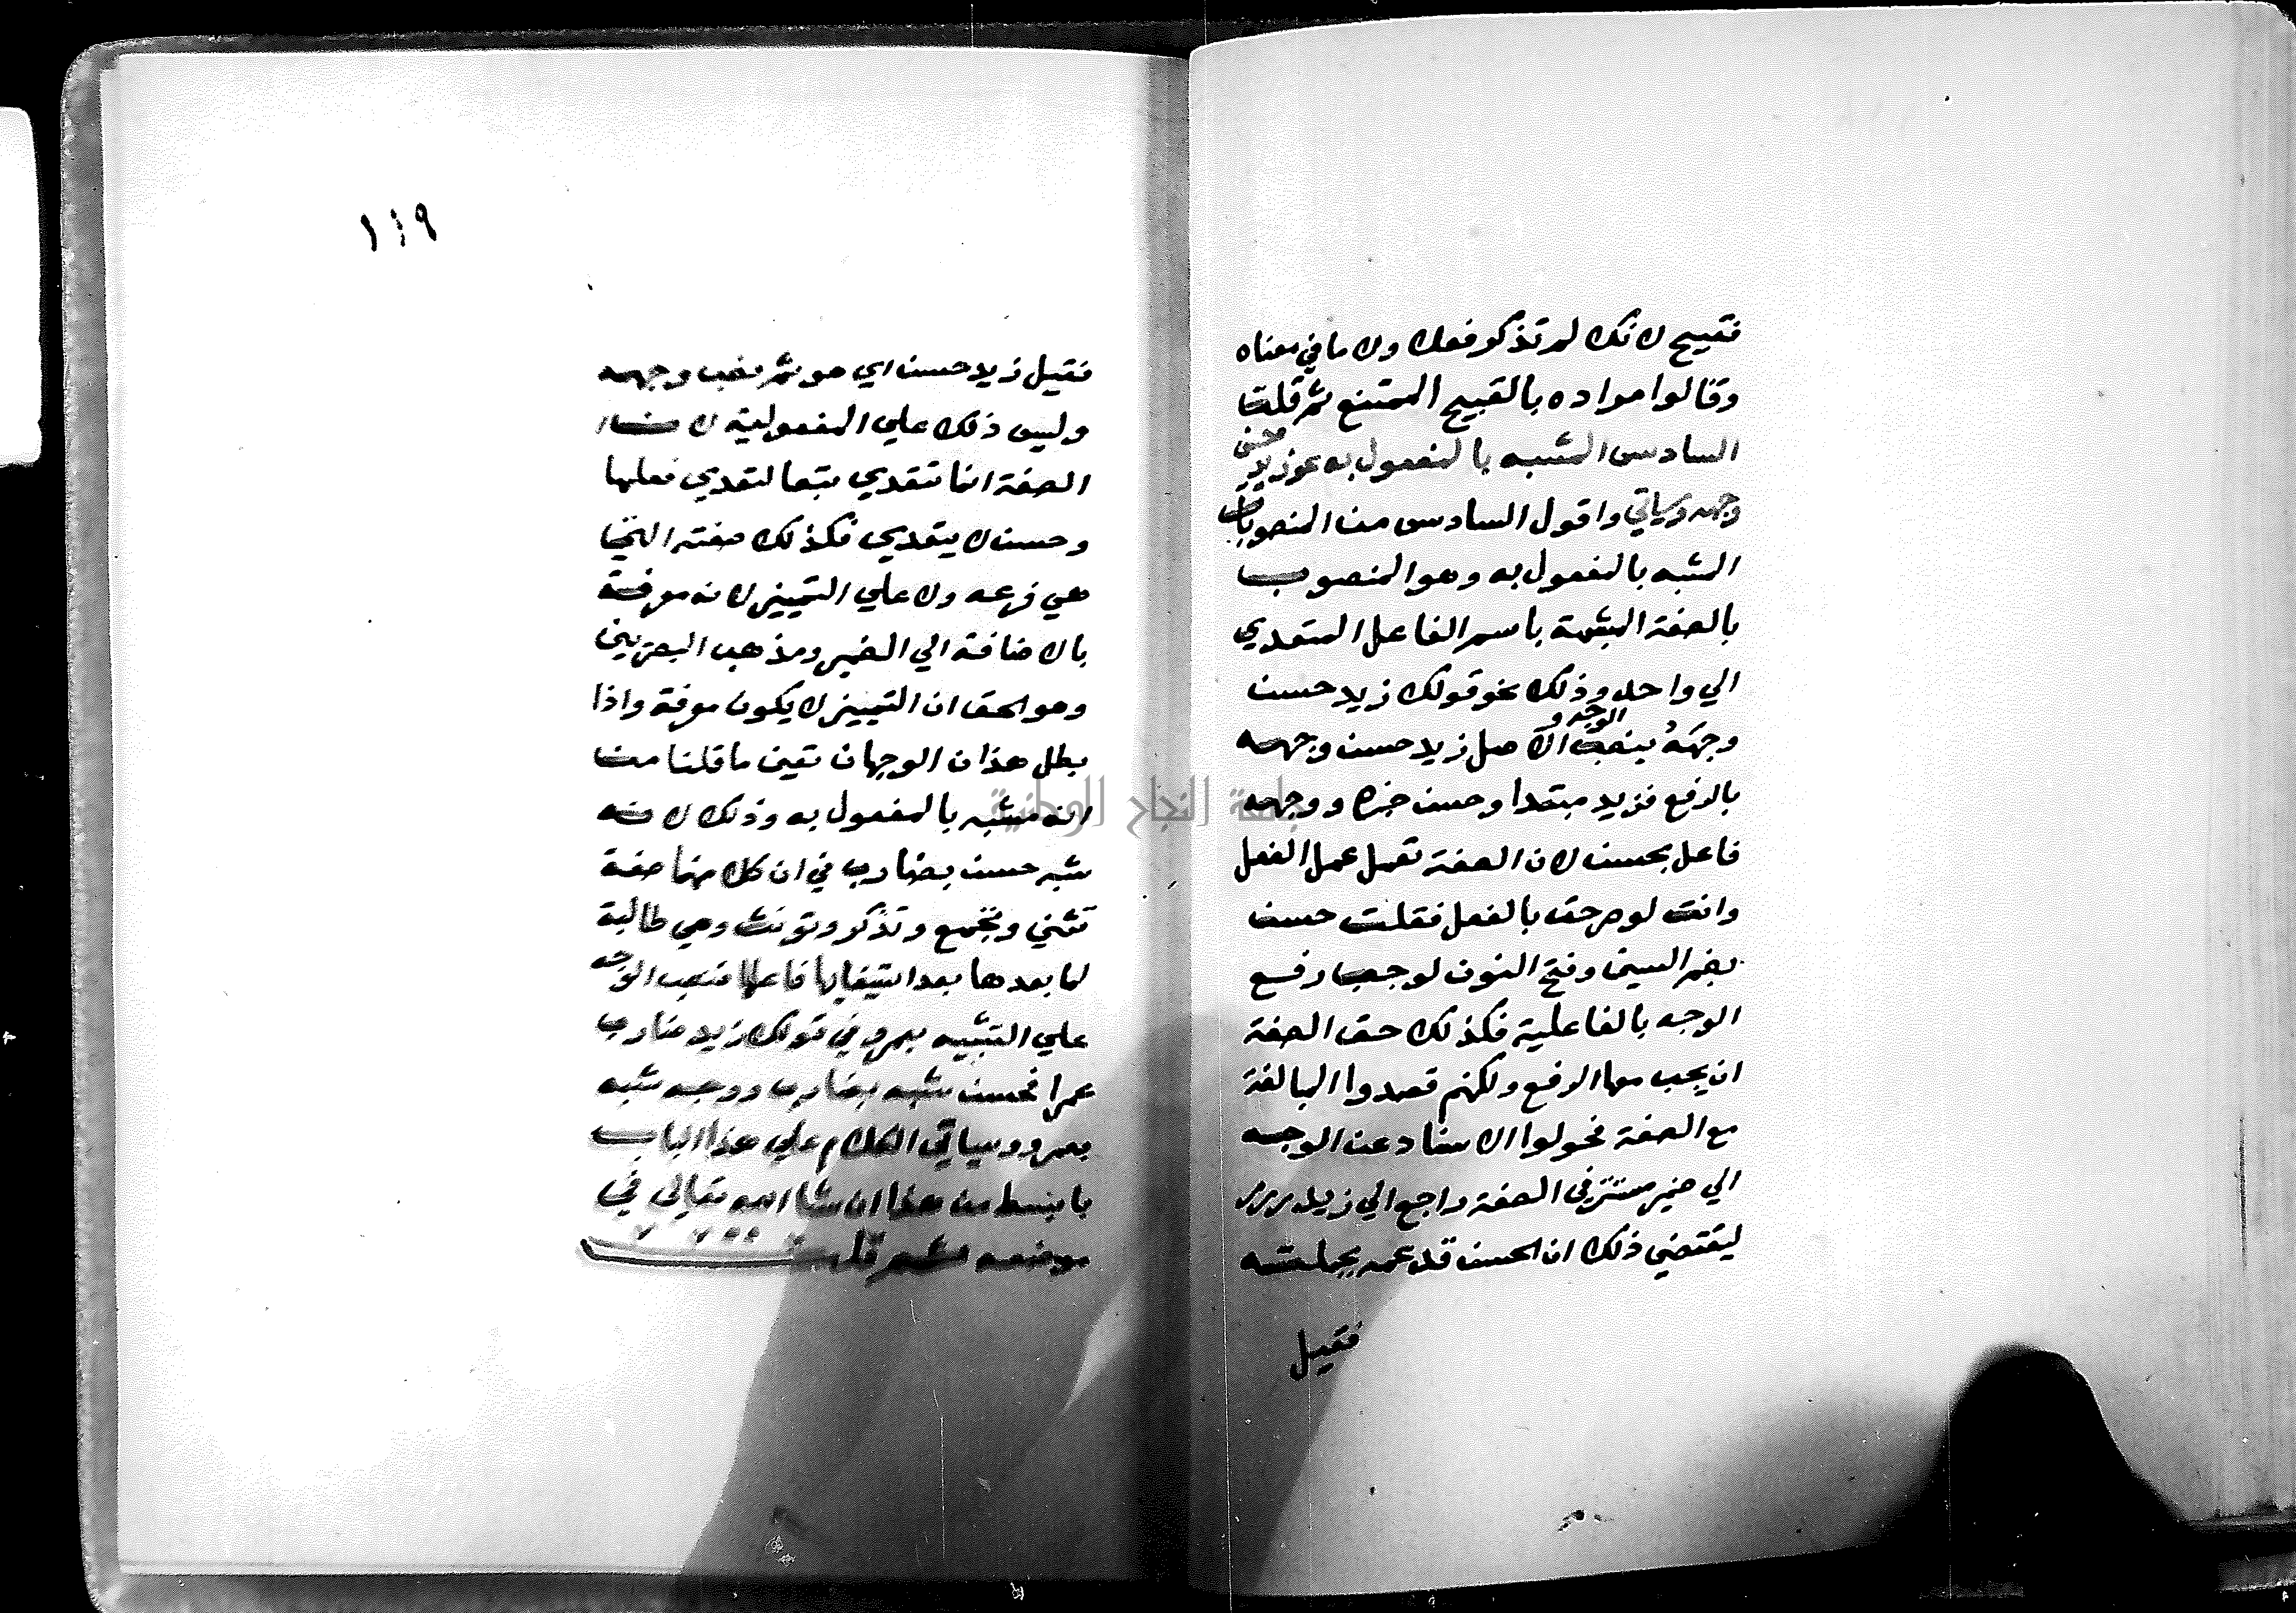 فقبيح لانك لم تذكر فعلا ولا ما في معناه
وقالوا مراده بالقبيح الممتنع ثم قلت
السادس المشبه بالمفعول به نحو زيد حسن
وجهه وسياتي واقول السادس من المنصوبات
المشبه بالمفعول به وهو المنصوب
بالصفة المشبهة باسم الفاعل المتعدي
الي واحد وذلك نحو قولك زيد حسن
وجهَهُ بنصب الوجه و الاصل زيد حسن وجهه
بالرفع فزيد مبتدا وحسن خبره ووجهه
فاعل بحسن لان الصفة تعمل عمل الفعل
وانت لو صرحت بالفعل فقلت حسن
بضم السين وفتح النون لوجب رفع
الوجه بالفاعلية فكذلك حق الصفة
ان يجب معها الرفع ولكنهم قصدوا المبالغة
مع الصفة فحولوا الاسناد عن الوجه
الي ضمير مستتر في الصفة راجع الي زيد
ليقتضي ذلك ان الحسن قد عمه بجملته
فقيل
١١٩
فقيل زيد حسن اي هو ثم نصب وجهه
وليس ذلك علي المفعولية لان
الصفة انما تتعدي تبعا لتعدي فعلها
وحسن لا يتعدي فكذلك صفته التي
هي فرعه ولا علي التمييز لانه معرفة
بالاضافة الي الضمير ومذهب البصريين
وهو الحق ان التمييز لا يكون معرفة واذا
بطل هذان الوجهان تعين ما قلنا من
انه مشبه بالمفعول به وذلك لانه
شبه حسن بضارب في ان كلا منهما صفة
تثني وتجمع وتذكر وتونث وهي طالبة
لما بعدها بعد استيفايها فاعلها فنصب الوجه
علي التشبيه بعمرو في قولك زيد ضارب
عمرا فحسن شبه بضارب ووجهه شبه
بعمرو وسياتي الكلام علي هذا الباب
بابسط من هذا ان شا الله تعالي في
موضعه ثم قلت
جامعة النجاح الوطنية